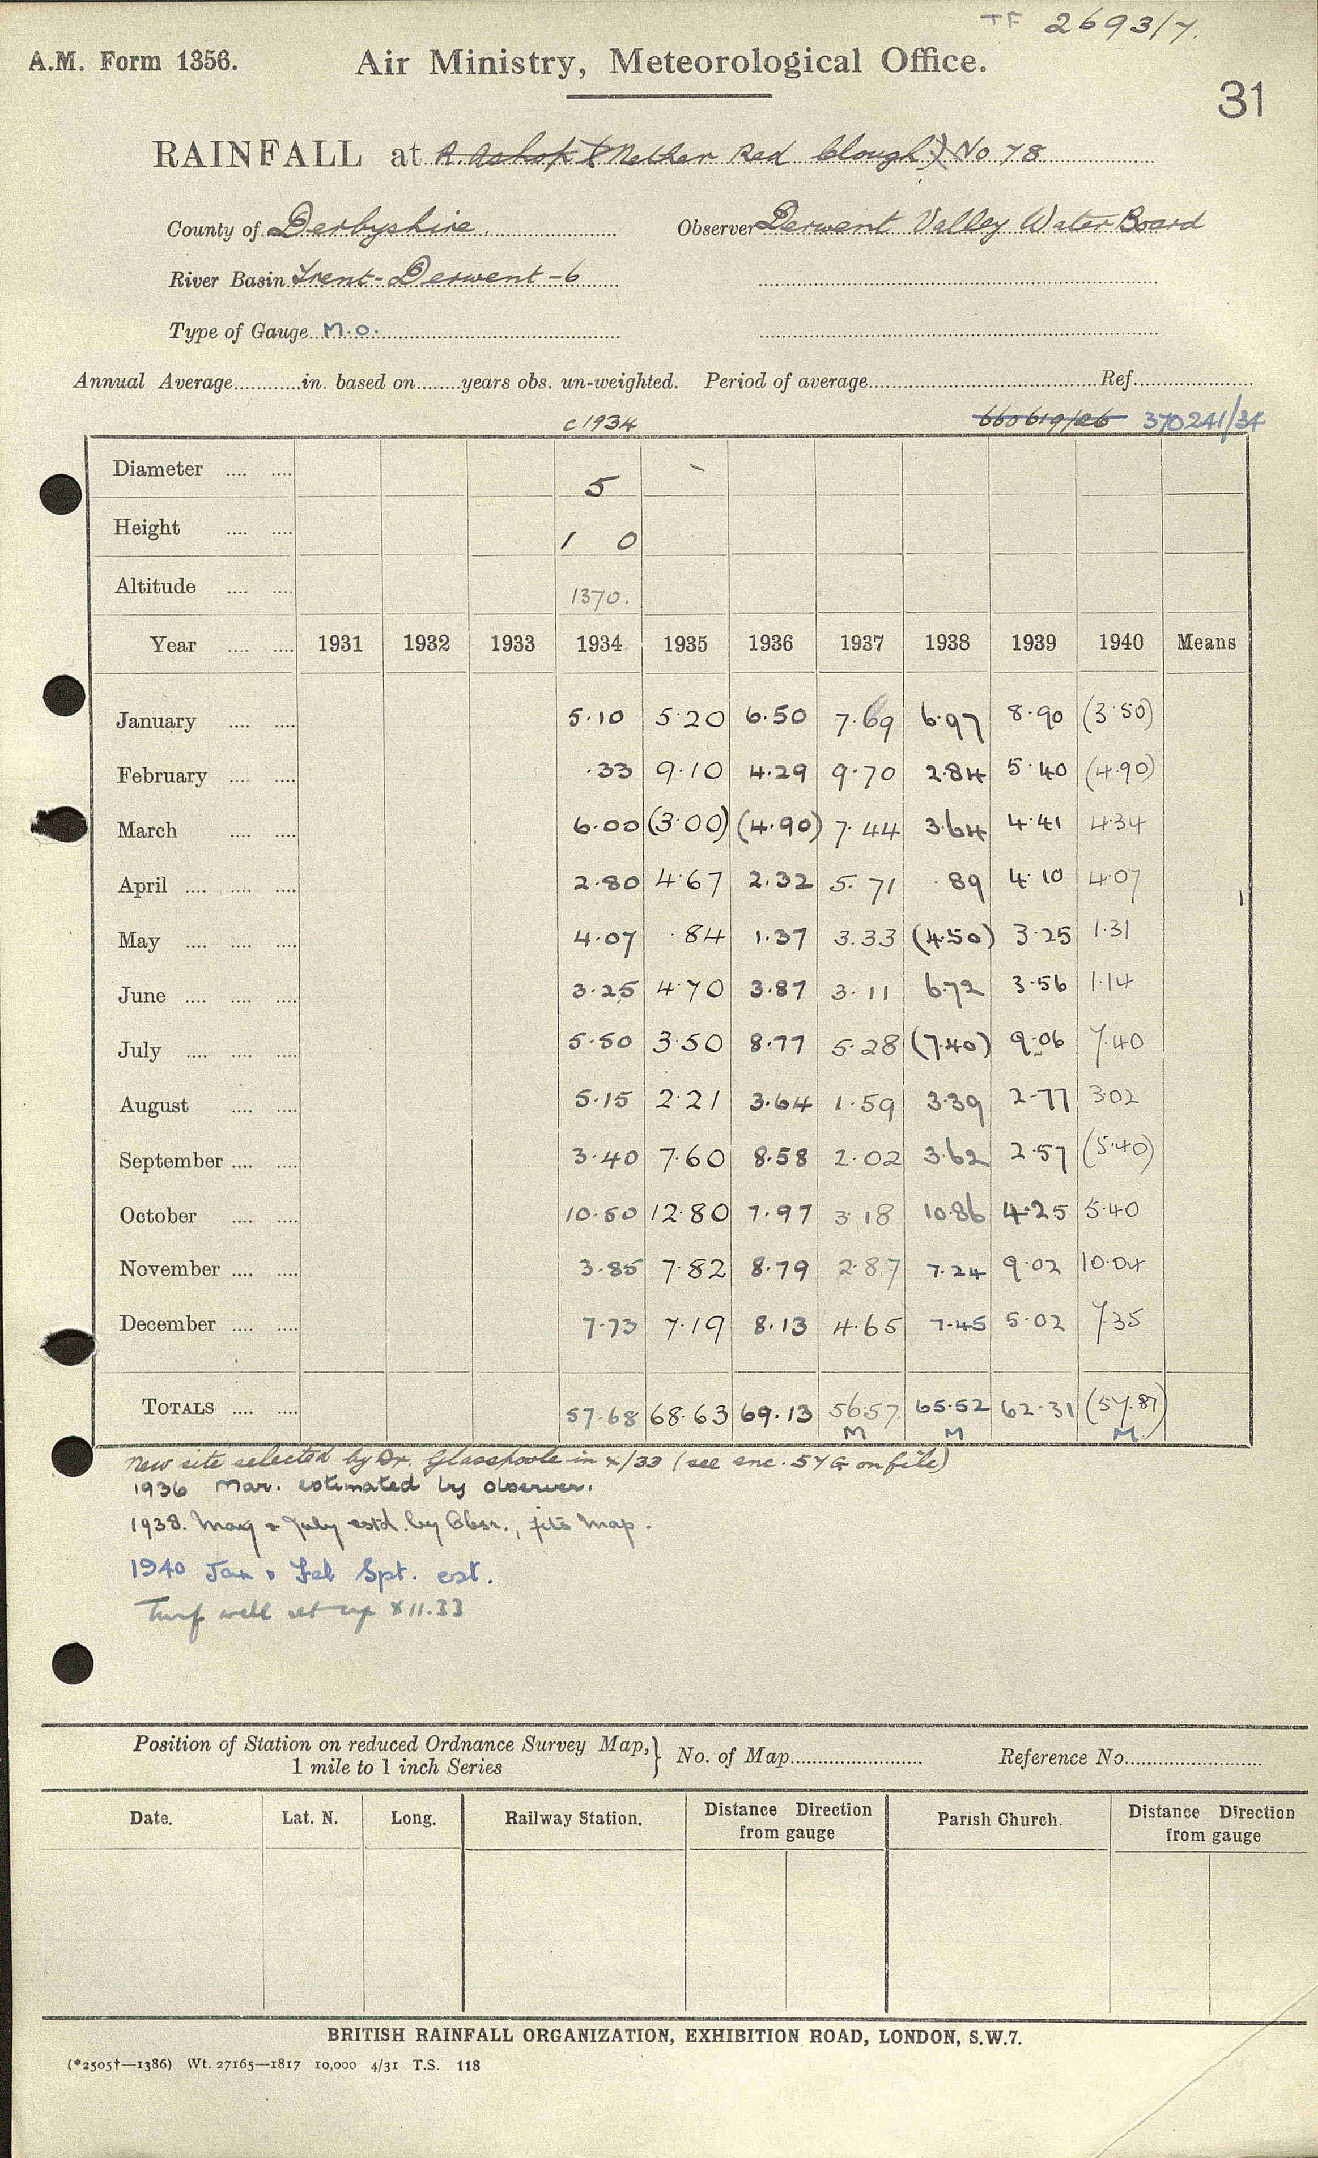 TF 2693/7.
A.M. Form 1356. Air Ministry, Meteorological Office.
31
RAINFALL at R. Ashop (Nether Red Clough) No 78
County of Derbyshire. Observer Derwent Valley Water Board
River Basin Trent-Derwent-6
Type of Gauge M.O.
Annual Average in. based on years obs. un-weighted. Period of average Ref.
c 1934 660619/26 370241/34
Diameter 5
Height 1 0
Altitude 1370.
Year 1931 1932 1933 1934 1935 1936 1937 1938 1939 1940 Means
January 5.10 5.20 6.50 7.69 6.97 8.90 (3.50)
February .33 9.10 4.29 9.70 2.84 5.40 (4.90)
March 6.00 (3.00) (4.90) 7.44 3.64 4.41 4.34
April 2.80 4.67 2.32 5.71 .89 4.10 4.07
May 4.07 .84 1.37 3.33 (4.50) 3.25 1.31
June 3.25 4.70 3.87 3.11 6.72 3.56 1.14
July 5.50 3.50 8.77 5.28 (7.40) 9.06 7.40
August 5.15 2.21 3.64 1.59 3.39 2.77 3.02
September 3.40 7.60 8.58 2.02 3.62 2.57 (5.40)
October 10.50 12.80 7.97 3.18 10.86 4.25 5.40
November 3.85 7.82 8.79 2.87 7.24 9.02 10.04
December 7.73 7.19 8.13 4.65 7.45 5.02 7.35
TOTALS 57.68 68.63 69.13 56.57 65.52 62.31 (57.87)
M M M
New site selected by Dr. Glasspoole in x/33 (see enc. 57G on file)
1936 Mar. estimated by observer.
1938. May & July estd. by Obsr., fits map.
1940 Jan & Feb Spt. est.
Turf wall set up X11.33
Position of Station on reduced Ordnance Survey Map, } No. of Map Reference No.
1 mile to 1 inch Series
Date. Lat. N. Long. Railway Station. Distance Direction from gauge Parish Church. Distance Direction from gauge
BRITISH RAINFALL ORGANIZATION, EXHIBITION ROAD, LONDON, S.W.7.
(*2505†—1386) Wt. 27165—1817 10,000 4/31 T.S. 118